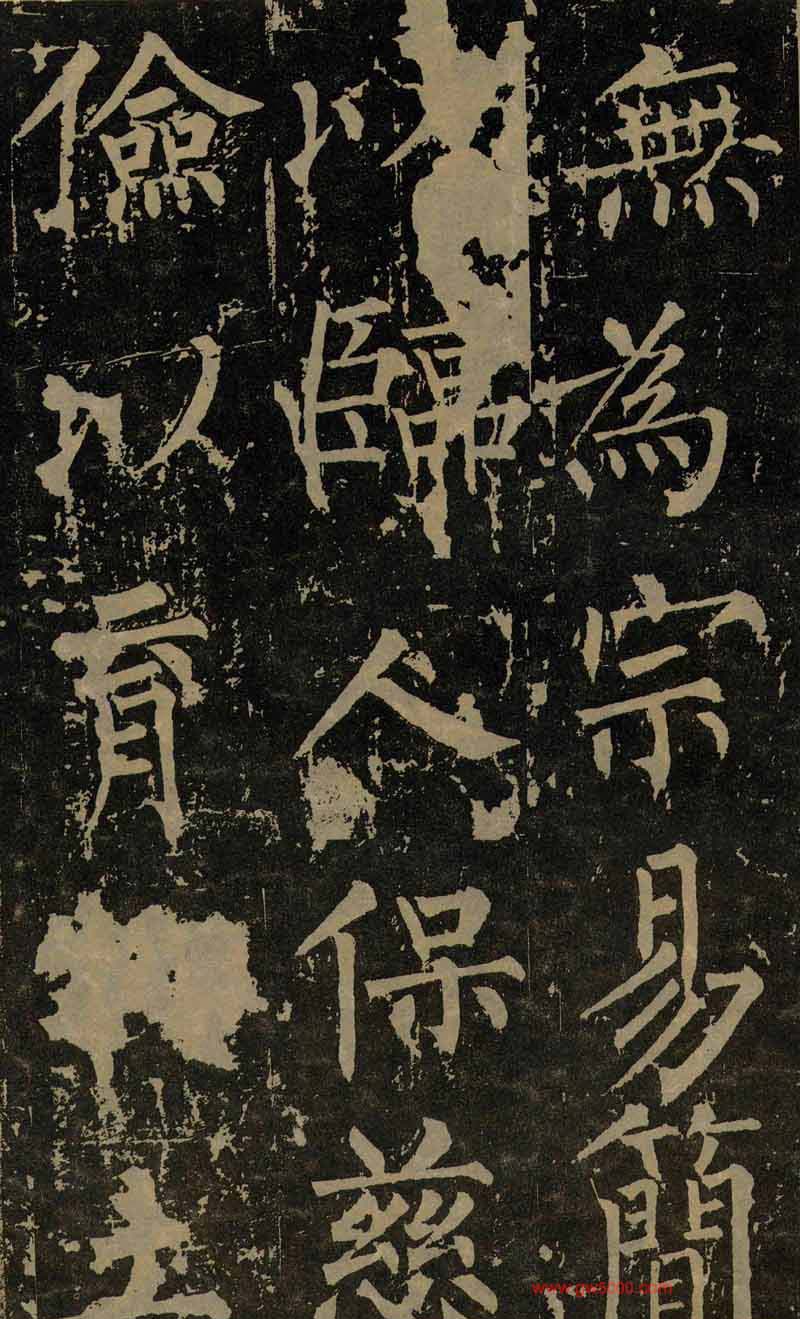 無為宗易簡
以臨人保慈
儉以育
www.gw5000.com